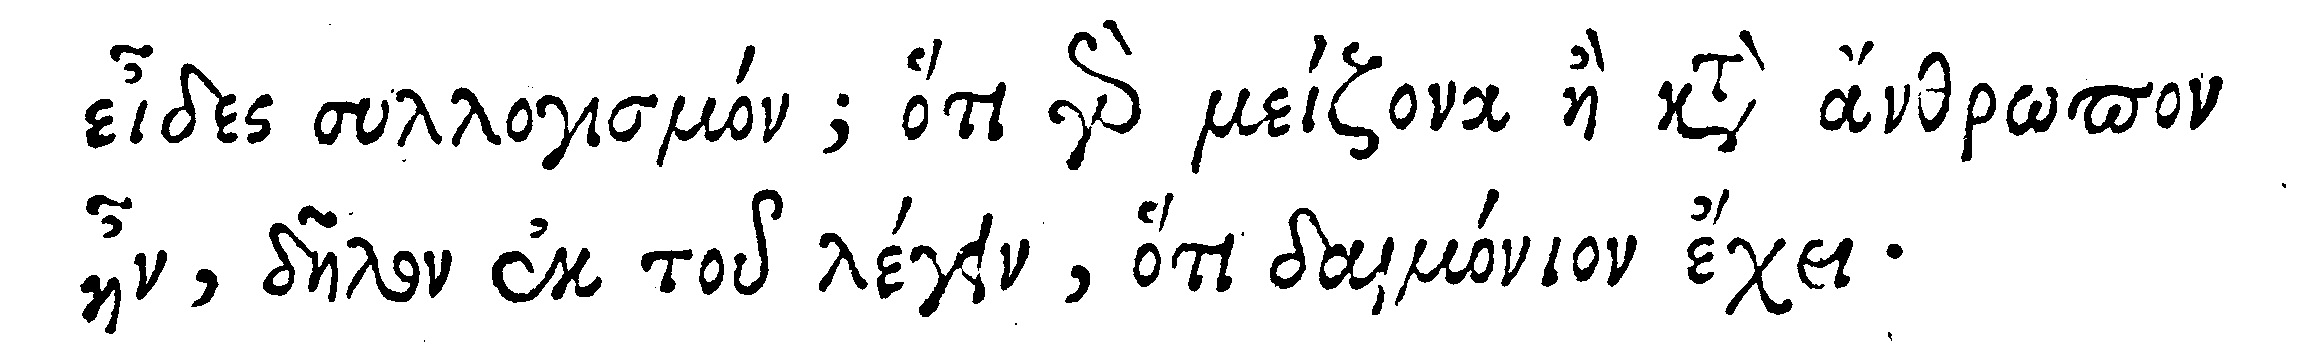 εἶδες συλλογισμόν; ὅτι γὰρ μείζονα ἢ κατὰ ἄνθρωπον
ἦν, δῆλον ἐκ τοῦ λέγειν, ὅτι δαιμόνιον ἔχει·